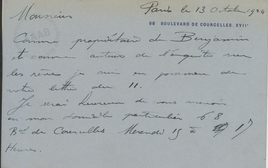 Paris le 13 Octobre 1924
68 BOULEVARD DE COURCELLES. XVIIᵉ
Monsieur
Comme propriétaire de Benjamin
et comme auteur de l'enquête sur
les rêves je suis en possession de
votre lettre du 11.
Je serai heureux de vous recevoir
en mon domicile particulier 68
Bd de Courcelles Mercredi 15 à 17
Heures.